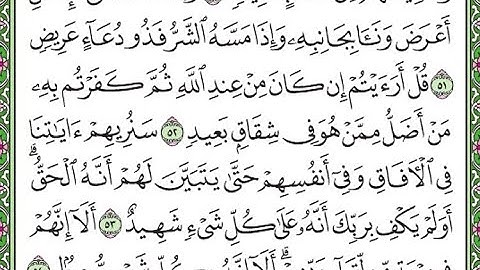 أَعْرَضَ وَنَـَٔا بِجَانِبِهِۦ وَإِذَا مَسَّهُ ٱلشَّرُّ فَذُو دُعَآءٍ عَرِيضٍ
٥١ قُلْ أَرَءَيْتُمْ إِن كَانَ مِنْ عِندِ ٱللَّهِ ثُمَّ كَفَرْتُم بِهِۦ
مَنْ أَضَلُّ مِمَّنْ هُوَ فِى شِقَاقٍۭ بَعِيدٍ ٥٢ سَنُرِيهِمْ ءَايَٰتِنَا
فِى ٱلْأَفَاقِ وَفِىٓ أَنفُسِهِمْ حَتَّىٰ يَتَبَيَّنَ لَهُمْ أَنَّهُ ٱلْحَقُّ ۗ
أَوَلَمْ يَكْفِ بِرَبِّكَ أَنَّهُۥ عَلَىٰ كُلِّ شَىْءٍ شَهِيدٌ ٥٣ أَلَآ إِنَّهُمْ